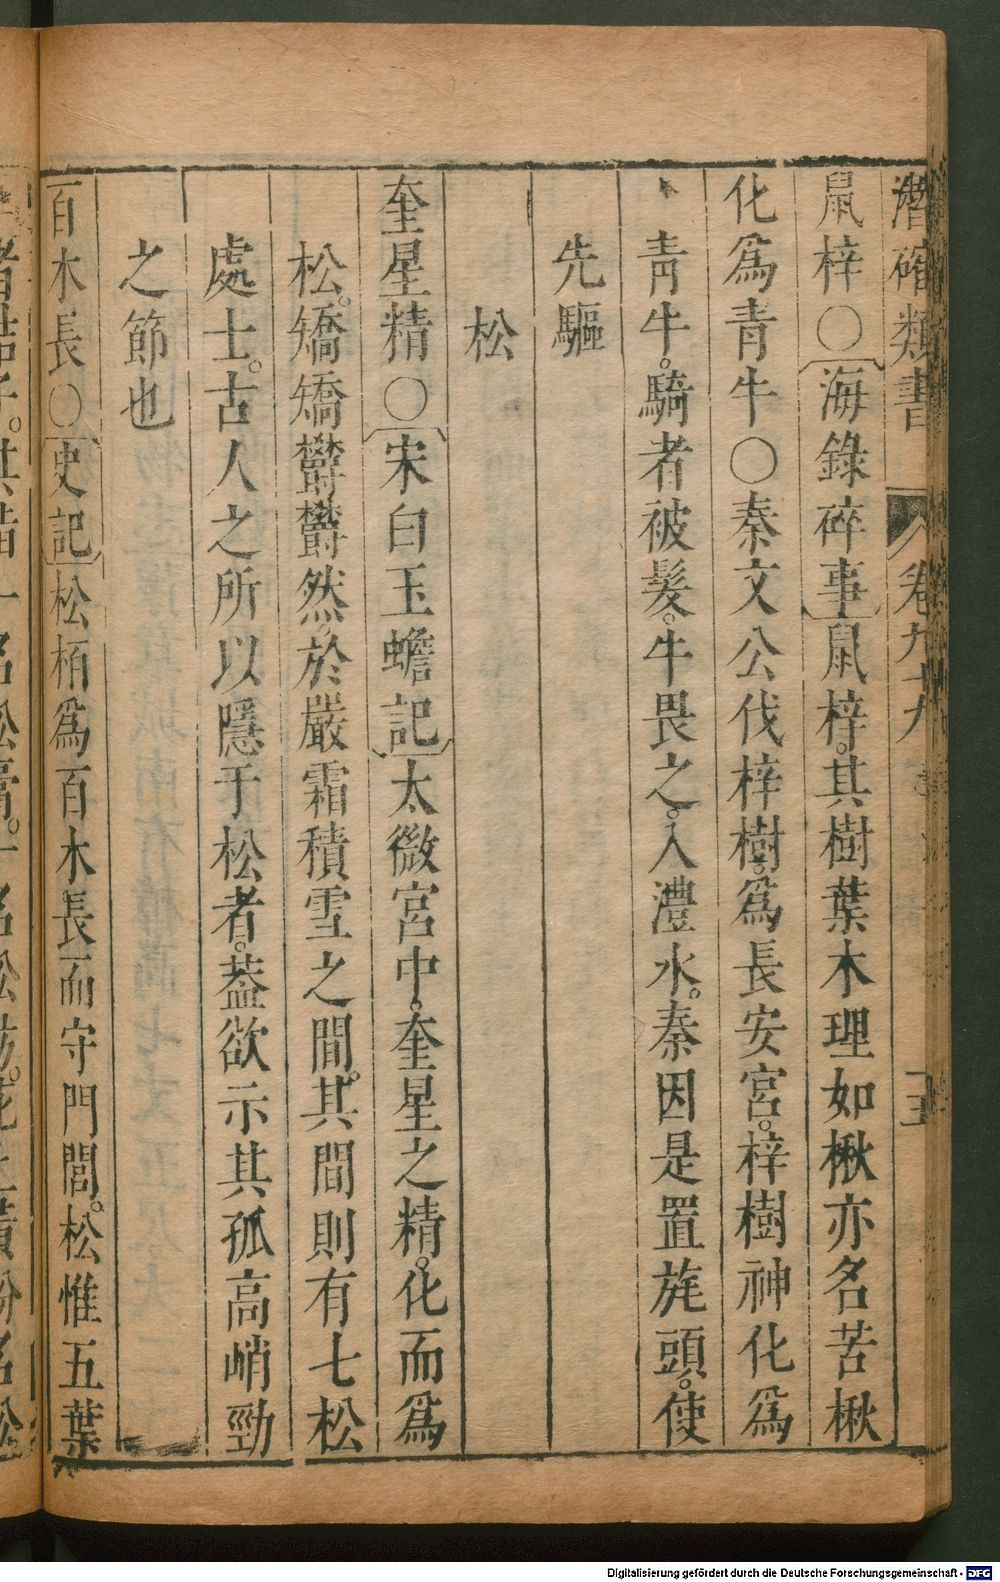 潛確類書 卷九十九 五
鼠梓〇海錄碎事鼠梓。其樹葉木理如楸亦名苦楸
化爲青牛〇秦文公伐梓樹。爲長安宮。梓樹神化爲
青牛。騎者被髮。牛畏之。入澧水。秦因是置旄頭。使
先驅
松
奎星精〇宋白玉蟾記太微宮中。奎星之精。化而爲
松。矯矯欝欝然。於嚴霜積雪之間。其間則有七松
處士。古人之所以隱于松者。蓋欲示其孤高峭勁
之節也
百木長〇史記松栢爲百木長而守門閭。松惟五葉
者結子。其脂一名松膏。一名松肪。花上黃粉名松
Digitalisierung gefördert durch die Deutsche Forschungsgemeinschaft - DFG